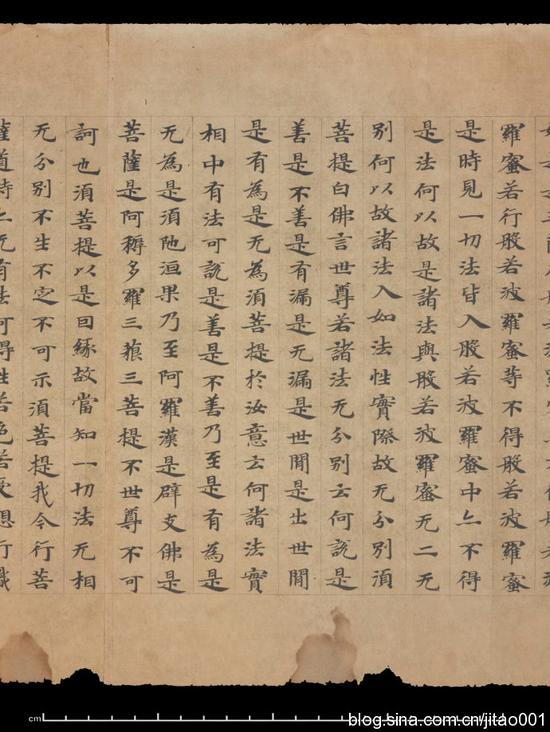 羅蜜若行般若波羅蜜等不得般若波羅蜜
是時見一切法皆入般若波羅蜜中亦不得
是法何以故是諸法與般若波羅蜜无二无
別何以故諸法入如法性實際故无分別須
菩提白佛言世尊若諸法无分別云何說是
善是不善是有漏是无漏是世間是出世間
是有為是无為須菩提於汝意云何諸法實
相中有法可說是善是不善乃至是有為是
无為是須陁洹果乃至阿羅漢是辟支佛是
菩薩是阿耨多羅三藐三菩提不世尊不可
訶也須菩提以是囙緣故當知一切法无相
无分別不生不定不可示須菩提我今行菩
薩道時亦无有法可得性若色若受想行識
cm
blog.sina.com.cn/jitao001